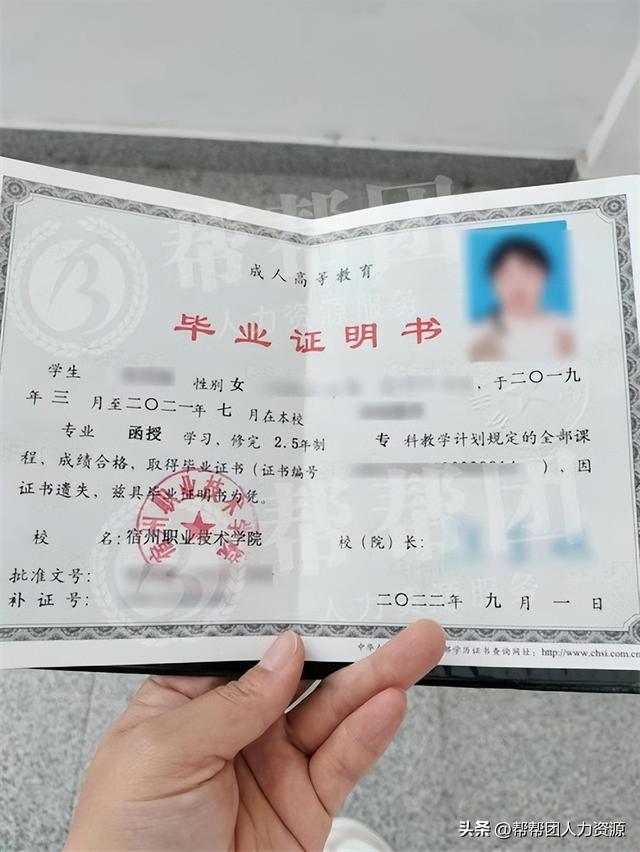 成人高等教育
毕业证明书
学生 性别 女 ，于二〇一九
年 三 月至二〇二一年 七 月在本校
专业 函授 学习，修完 2.5年制 专 科教学计划规定的全部课
程，成绩合格，取得毕业证书（证书编号 ），因
证书遗失，兹具毕业证明书为凭。
宿州职业技术学院
校 名：宿州职业技术学院 校（院）长：
批准文号：
补证号： 二〇二二年 九 月 一 日
中华人 学历证书查询网址：http://www.chsi.com.cn
帮帮团
人力资源服务
帮帮团
人力资源服务
头条 @帮帮团人力资源